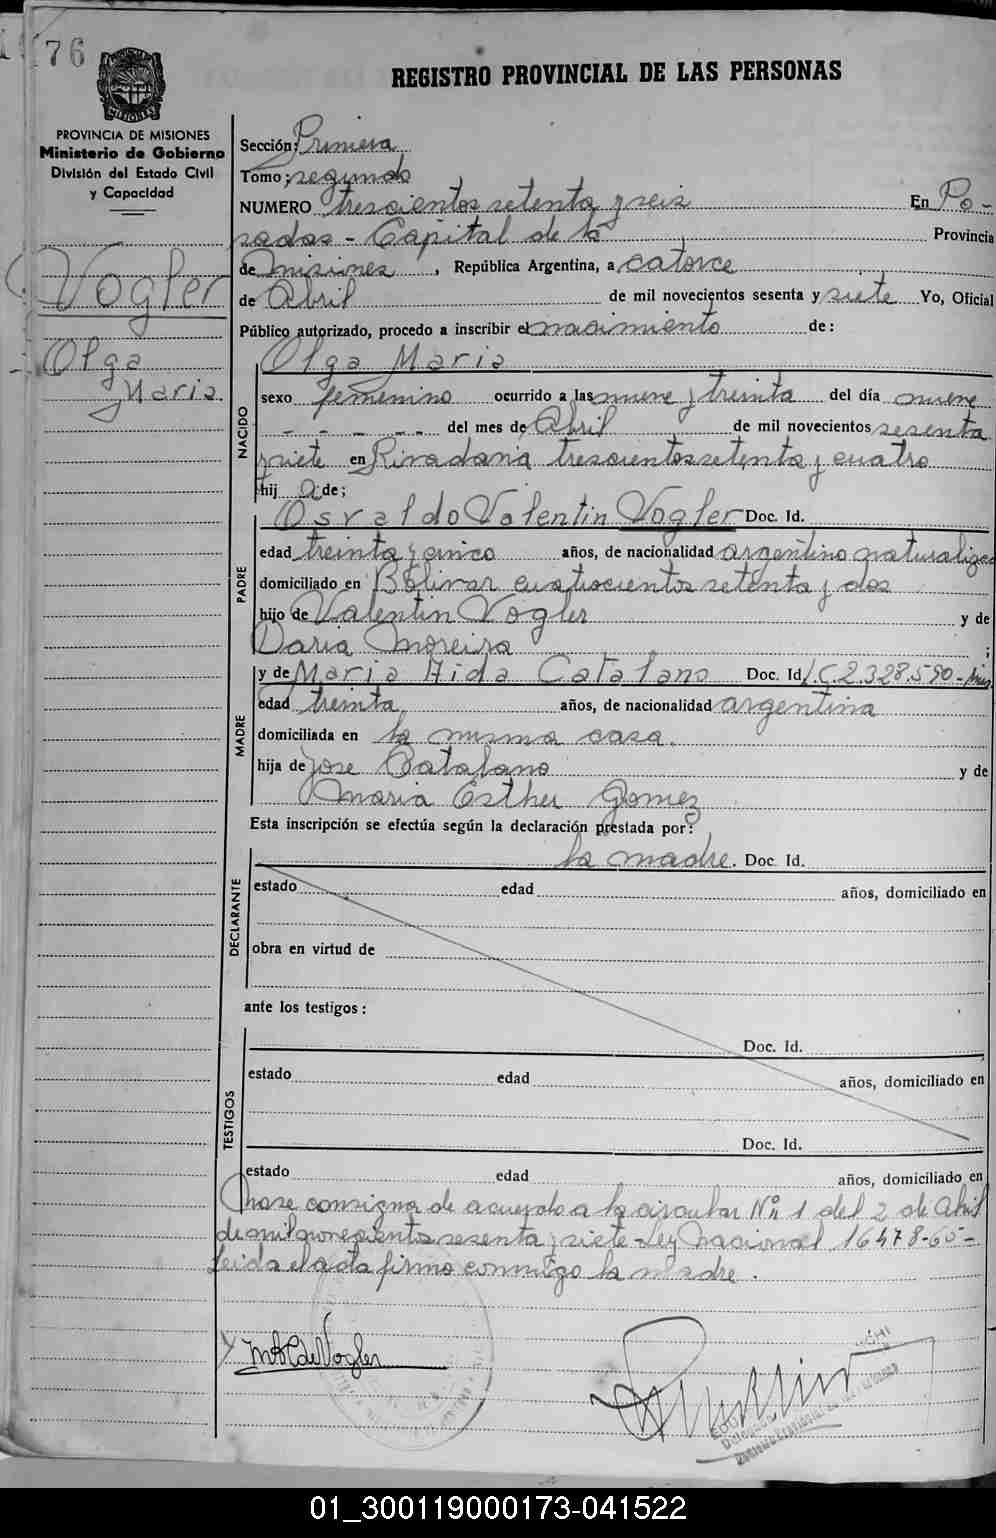 76
REGISTRO PROVINCIAL DE LAS PERSONAS
PROVINCIA DE MISIONES
Ministerio de Gobierno
División del Estado Civil
y Capacidad
Vogler
Olga
Maria.
Sección: Primera
Tomo: segundo
NUMERO trescientos setenta y seis En Po-
sadas - Capital de la Provincia
de misiones, República Argentina, a catorce
de Abril de mil novecientos sesenta y siete Yo, Oficial
Público autorizado, procedo a inscribir el nacimiento de:
Olga Maria
NACIDO
sexo femenino ocurrido a las nueve y treinta del día nueve
- - - - - del mes de Abril de mil novecientos sesenta
y siete en Rivadavia trescientos setenta y cuatro
hij a de;
PADRE
Osvaldo Valentin Vogler Doc. Id.
edad treinta y cinco años, de nacionalidad argentino naturalizado
domiciliado en Bolivar cuatrocientos setenta y dos
hijo de Valentin Vogler y de
Daria Moreira ;
MADRE
y de Maria Aida Catalano Doc. Id. L.C.2.328.590-
edad treinta años, de nacionalidad argentina
domiciliada en la misma casa.
hija de Jose Catalano y de
Maria Esther Gomez
Esta inscripción se efectúa según la declaración prestada por:
la madre. Doc. Id.
DECLARANTE
estado edad años, domiciliado en
obra en virtud de
ante los testigos:
TESTIGOS
Doc. Id.
estado edad años, domiciliado en
Doc. Id.
estado edad años, domiciliado en
consigna de acuerdo a la circular Nº 1 del 2 de Abril
de mil novecientos sesenta y siete - Ley Nacional 16478-65-
Leida el acta firmo conmigo la madre.
de Vogler
01_300119000173-041522